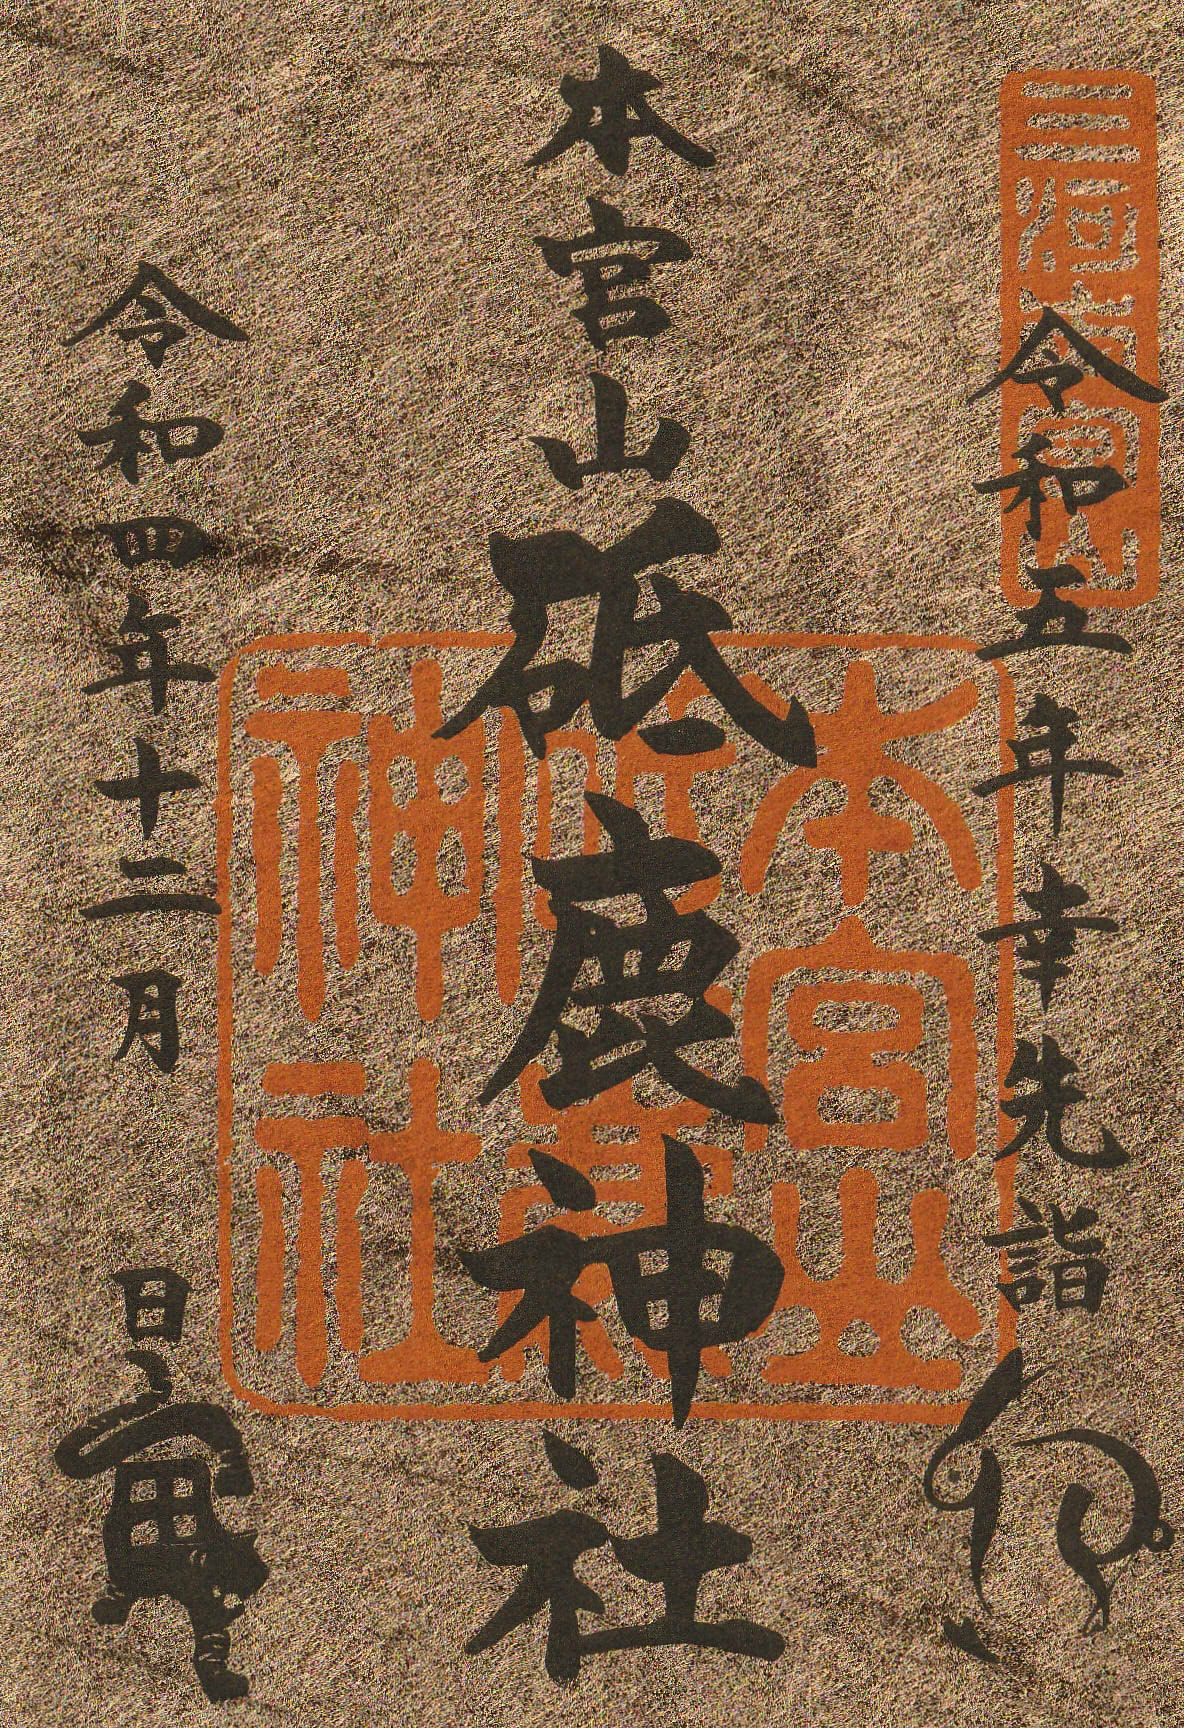 令和五年幸先詣 卯
本宮山砥鹿神社
令和四年十二月 日 寅
本宮山
砥鹿
神社